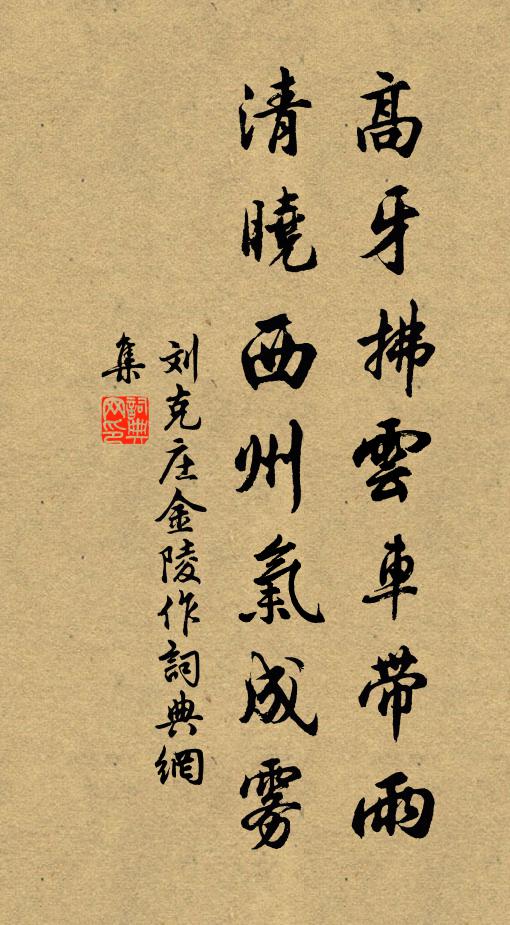 高牙拂雲車帶雨
清曉西州氣成雾
刘克庄金陵作詞典網
集
詞典网印